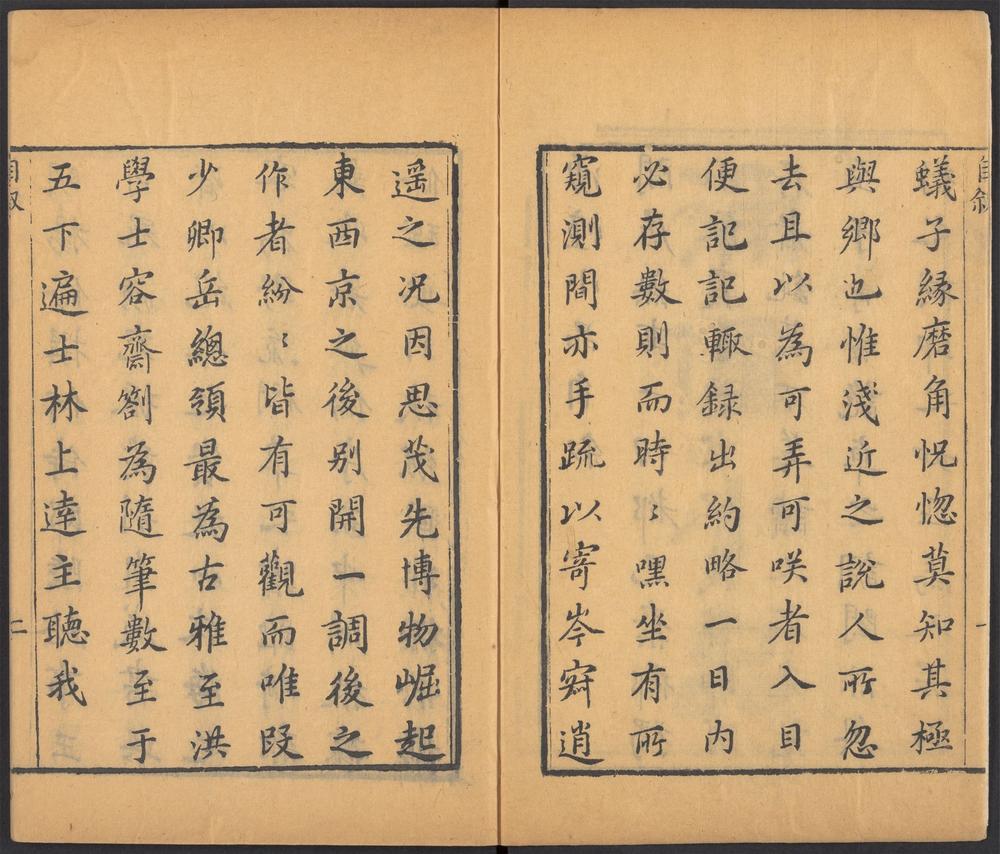 自敘
蟻子緣磨角怳惚莫知其極
與鄉也惟淺近之說人所忽
去且以為可弄可咲者入目
便記記輙録出約略一日內
必存數則而時〻嘿坐有所
窺測間亦手疏以寄岑寂逍
一
遥之况因思茂先博物崛起
東西京之後别開一調後之
作者紛〻皆有可觀而唯段
少卿岳總領最為古雅至洪
學士容齋劄為隨筆數至于
五下遍士林上達主聽我
自敘
二